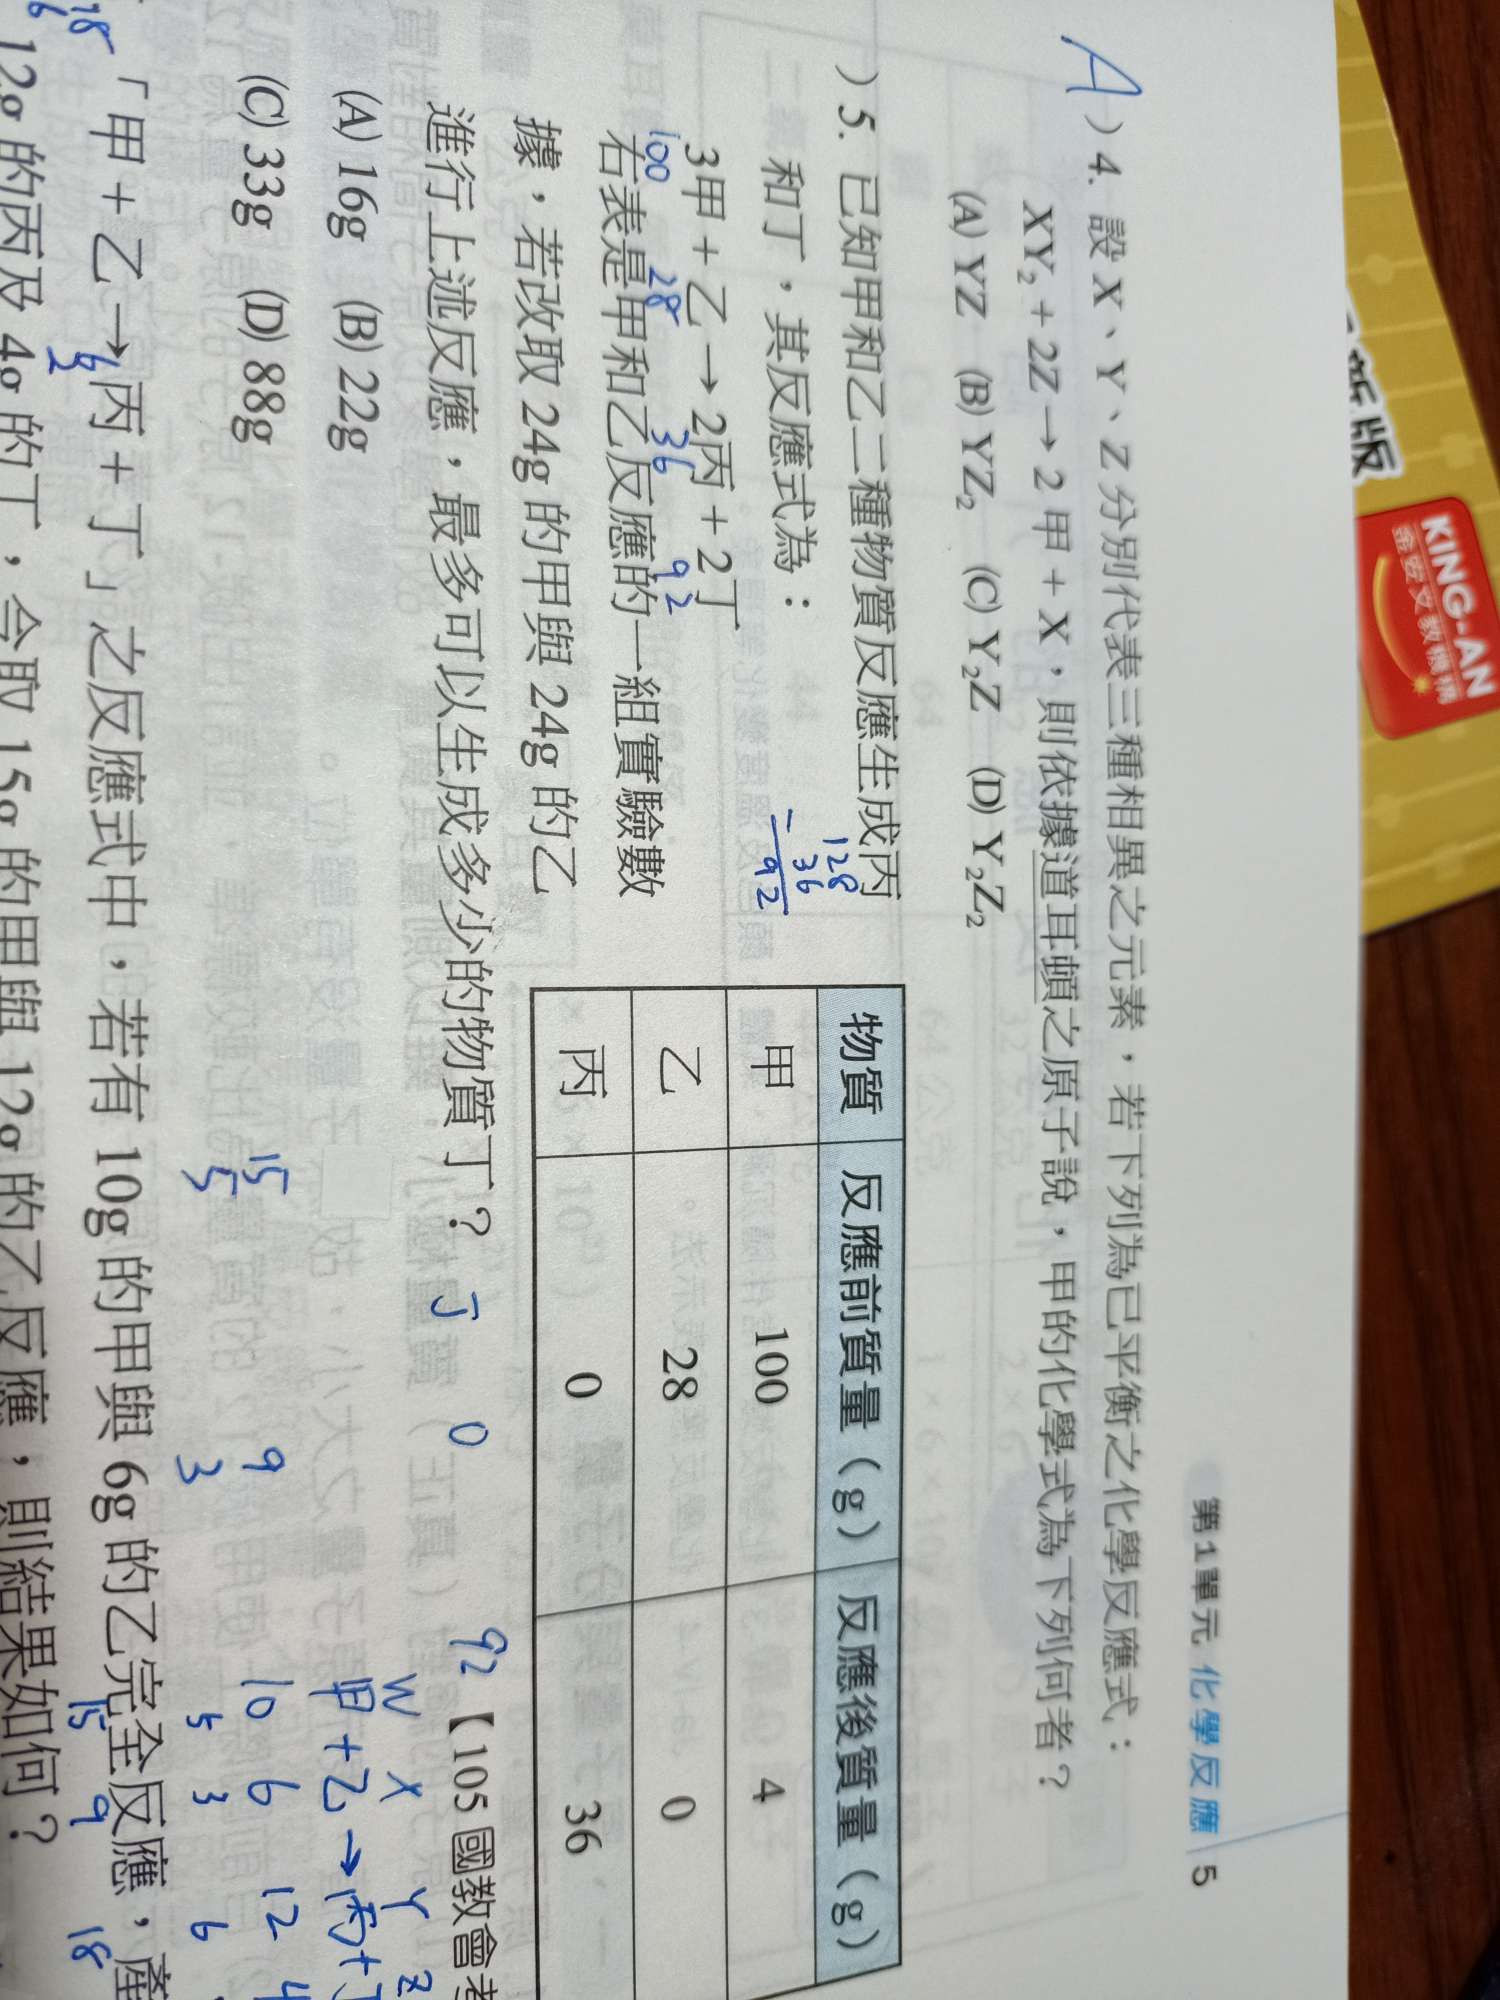 新版
KING-AN
金安文教機構
第1單元 化學反應 5
A )4. 設 X、Y、Z 分別代表三種相異之元素,若下列為已平衡之化學反應式:
XY₂ + 2Z → 2 甲 + X,則依據道耳頓之原子說,甲的化學式為下列何者?
(A) YZ (B) YZ₂ (C) Y₂Z (D) Y₂Z₂
)5. 已知甲和乙二種物質反應生成丙
和丁,其反應式為:
128
36
- 92
3甲 + 乙 → 2丙 + 2丁
100 28 36 92
右表是甲和乙反應的一組實驗數
據,若改取 24g 的甲與 24g 的乙
進行上述反應,最多可以生成多少的物質丁?
物質 反應前質量(g) 反應後質量(g)
甲 100 4
乙 28 0
丙 0 36
丁 0 92
【105 國教會考
(A) 16g (B) 22g
(C) 33g (D) 88g
W X Y Z
甲 + 乙 → 丙 +
15 9 10 6 12 4
5 3 5 3 6
「甲 + 乙 → 丙 + 丁」之反應式中,若有 10g 的甲與 6g 的乙完全反應,產
18 6 2 15 9 18
12g 的丙及 4g 的丁,今取 15g 的甲與 12g 的乙反應,則結果如何?